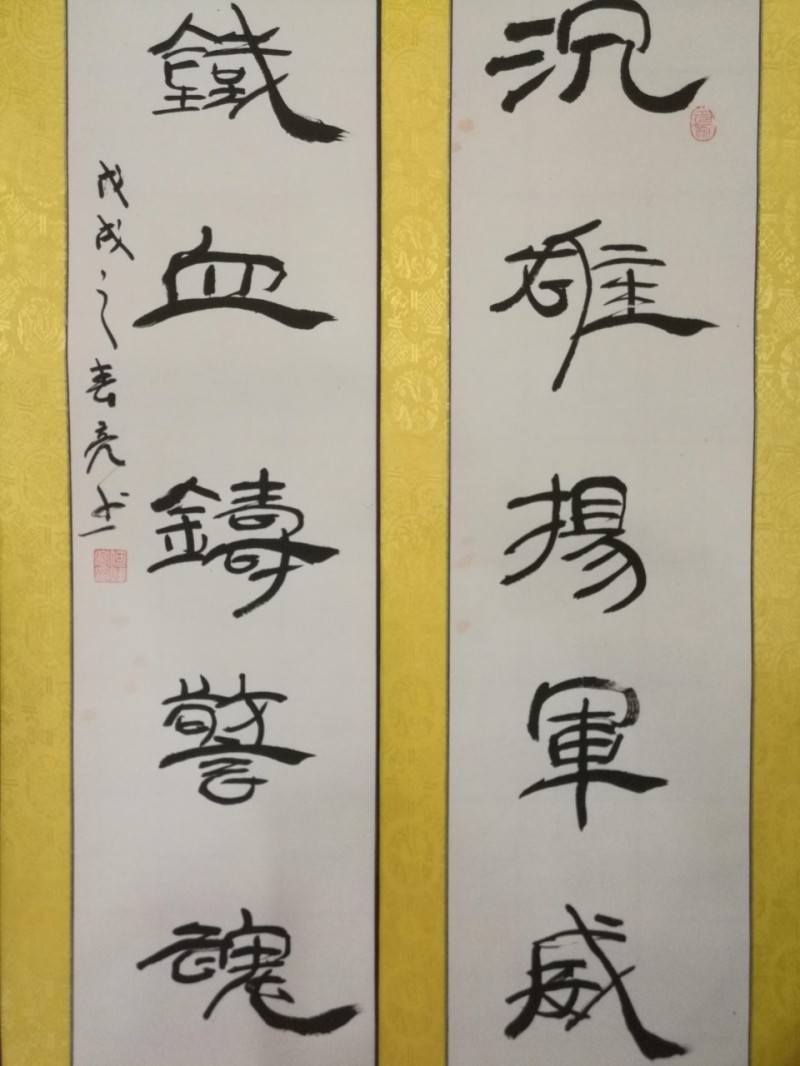 沉雄揚軍威
鐵血鑄警魂
戊戌之春亮書